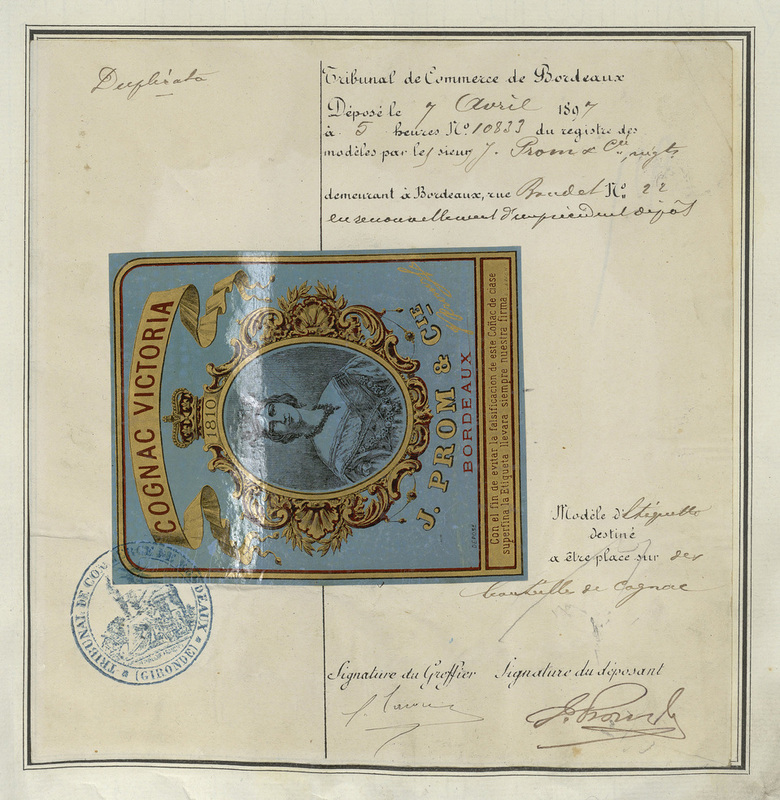 Duplicata
Tribunal de Commerce de Bordeaux
Déposé le 7 Avril 1897
à 5 heures No. 10833 du registre des
modèles par les sieurs J. Prom & Cie, négts
demeurant à Bordeaux, rue Boudet No. 22
en renouvellement d'un précédent dépôt
COGNAC VICTORIA
1810
J. PROM & CIE
BORDEAUX
Con el fin de evitar la falsificacion de este Coñac de clase
superfina la Etiqueta llevara siempre nuestra firma
DÉPOSÉ
Modèle d'Etiquette
destiné
a être place sur des
bouteilles de Cognac
TRIBUNAL DE COMMERCE DE BORDEAUX
(GIRONDE)
Signature du Greffier Signature du déposant